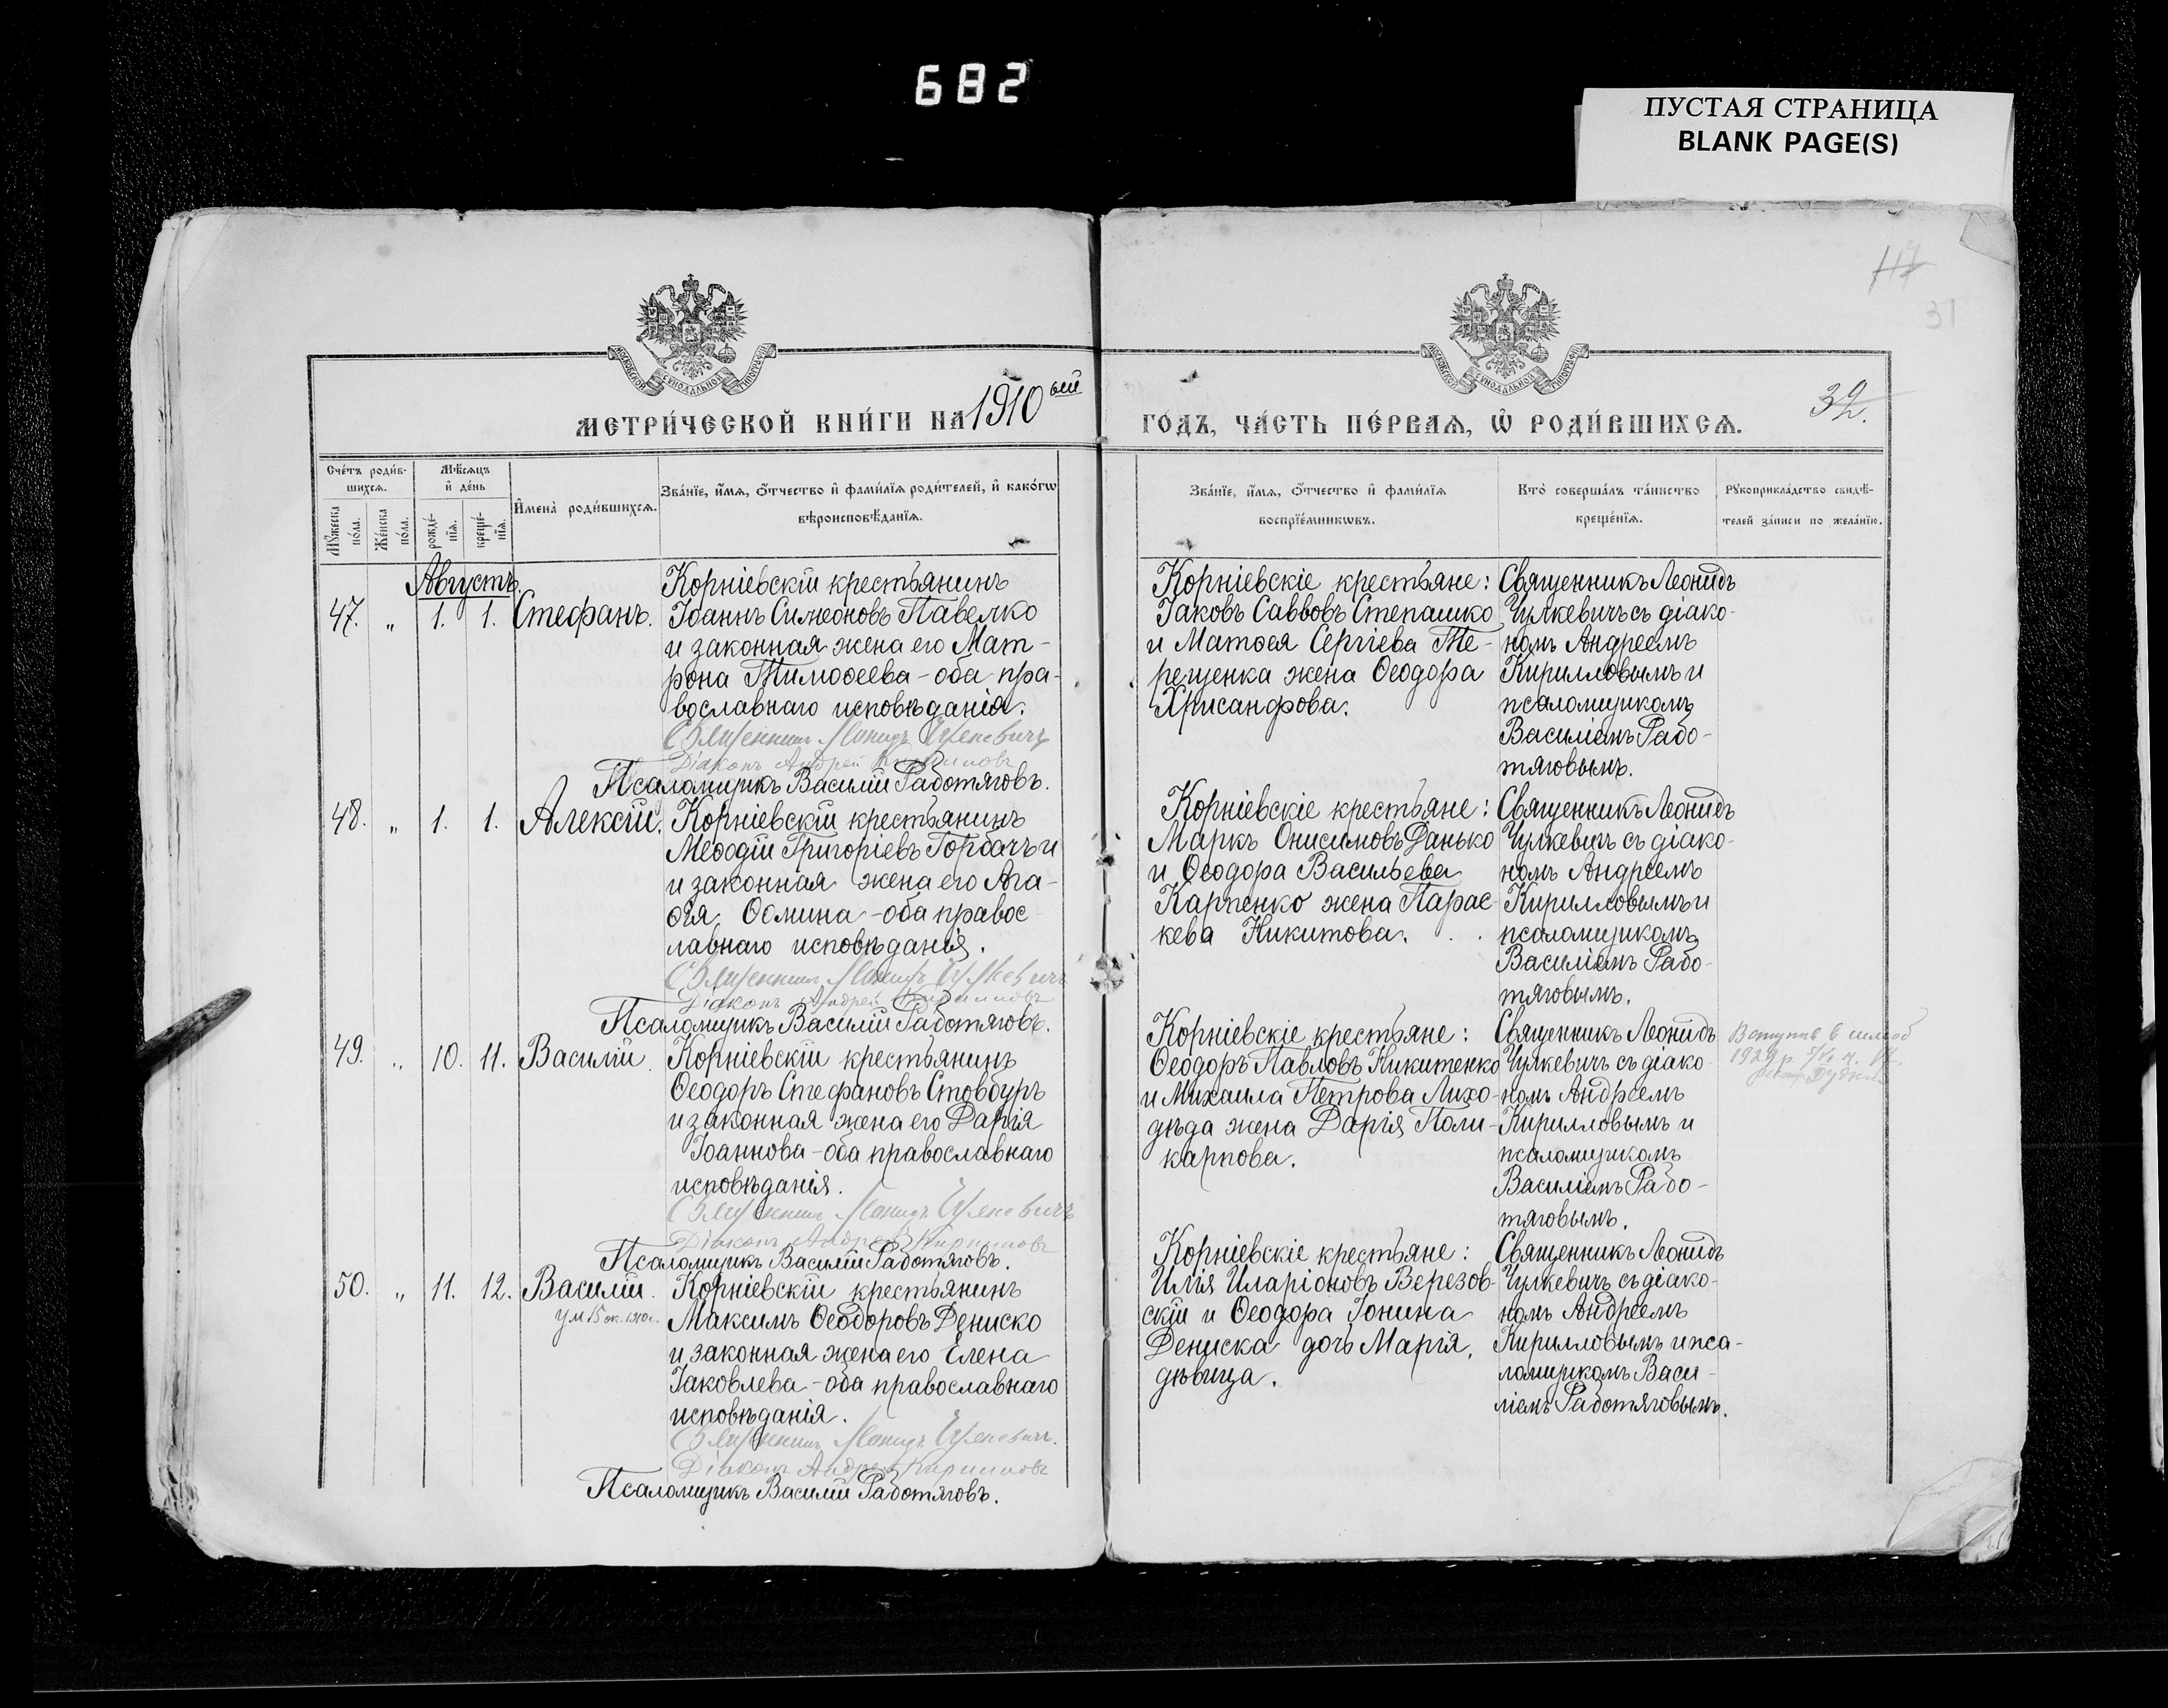 682
ПУСТАЯ СТРАНИЦА
BLANK PAGE(S)
117
31
32.
МОСКОВСКОЙ СѴНОДАЛЬНОЙ ТИПОГРАФІИ
МОСКОВСКОЙ СѴНОДАЛЬНОЙ ТИПОГРАФІИ
МЕТРИ́ЧЕСКОЙ КНИ́ГИ НА 1910ый
ГО́ДЪ, ЧА́СТЬ ПЕ́РВАѦ, Ѡ҆ РОДИ́ВШИХСѦ.
Сче́тъ роди́в-
шихсѧ.
Мꙋ́жеска
по́ла.
Же́нска
по́ла.
Мѣ́сѧцъ
и҆ де́нь
рожде́-
нїѧ.
креще́-
нїѧ.
И҆мена̀ роди́вшихсѧ.
Зва́нїе, и҆́мѧ, ѻ҆́тчество и҆ фами́лїѧ роди́телей, и҆ како́гѡ
вѣроисповѣ́данїѧ.
Зва́нїе, и҆́мѧ, ѻ҆́тчество и҆ фами́лїѧ
воспрїе́мникѡвъ.
Кто̀ соверша́лъ та́инство
креще́нїѧ.
Рꙋкоприкла́дство свидѣ́-
телей за́писи по жела́нїю.
Августъ.
47. " 1. 1. Стефанъ.
Корніевскій крестьянинъ
Іоаннъ Симеоновъ Павелко
и законная жена его Мат-
рона Тимоѳеева - оба пра-
вославнаго исповѣданія.
Священникъ Леонидъ Чулкевичъ
Діаконъ Андрей Кирилловъ
Псаломщикъ Василій Работяговъ.
Корніевскіе крестьяне:
Іаковъ Саввовъ Степашко
и Матѳея Сергіева Те-
рещенка жена Ѳеодора
Хрисанфова.
Священникъ Леонидъ
Чулкевичъ съ діако-
номъ Андреемъ
Кирилловымъ и
псаломщикомъ
Василіемъ Рабо-
тяговымъ.
48. " 1. 1. Алексій.
Корніевскій крестьянинъ
Меѳодій Григоріевъ Горбачъ и
и законная жена его Ага-
ѳія Ѳомина - оба правос-
лавнаго исповѣданія.
Священникъ Леонидъ Чулкевичъ
Діаконъ Андрей Кирилловъ
Псаломщикъ Василій Работяговъ.
Корніевскіе крестьяне:
Маркъ Онисимовъ Данько
и Ѳеодора Васильева
Карпенко жена Парас-
кева Никитова.
Священникъ Леонидъ
Чулкевичъ съ діако-
номъ Андреемъ
Кирилловымъ и
псаломщикомъ
Василіемъ Рабо-
тяговымъ.
49. " 10. 11. Василій.
Корніевскій крестьянинъ
Ѳеодоръ Стефановъ Стовбуръ
и законная жена его Дарія
Іоаннова - оба православнаго
исповѣданія.
Священникъ Леонидъ Чулкевичъ
Діаконъ Андрей Кирилловъ
Псаломщикъ Василій Работяговъ.
Корніевскіе крестьяне:
Ѳеодоръ Павловъ Никитенко
и Михаила Петрова Лихо-
дѣда жена Дарія Поли-
карпова.
Священникъ Леонидъ
Чулкевичъ съ діако-
номъ Андреемъ
Кирилловымъ и
псаломщикомъ
Василіемъ Рабо-
тяговымъ.
Вступив в шлюб
1929 р.
50. " 11. 12. Василій.
ум 15 ок. 1910 г.
Корніевскій крестьянинъ
Максимъ Ѳеодоровъ Дениско
и законная жена его Елена
Іаковлева - оба православнаго
исповѣданія.
Священникъ Леонидъ Чулкевичъ.
Діаконъ Андрей Кирилловъ
Псаломщикъ Василій Работяговъ.
Корніевскіе крестьяне:
Илія Иларіоновъ Березов-
скій и Ѳеодора Іонина
Дениска дочь Марія,
дѣвица.
Священникъ Леонидъ
Чулкевичъ съ діако-
номъ Андреемъ
Кирилловымъ и пса-
ломщикомъ Васи-
ліемъ Работяговымъ.